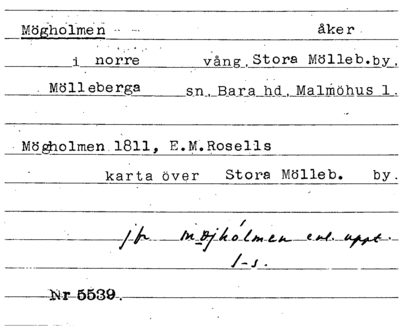 Mögholmen åker
i norre vång. Stora Mölleb.by.
Mölleberga sn. Bara hd. Malmöhus l.
Mögholmen 1811, E.M.Rosells
karta över Stora Mölleb. by.
jfr møjhólmen enl. uppt.
l-s.
Nr 5539.